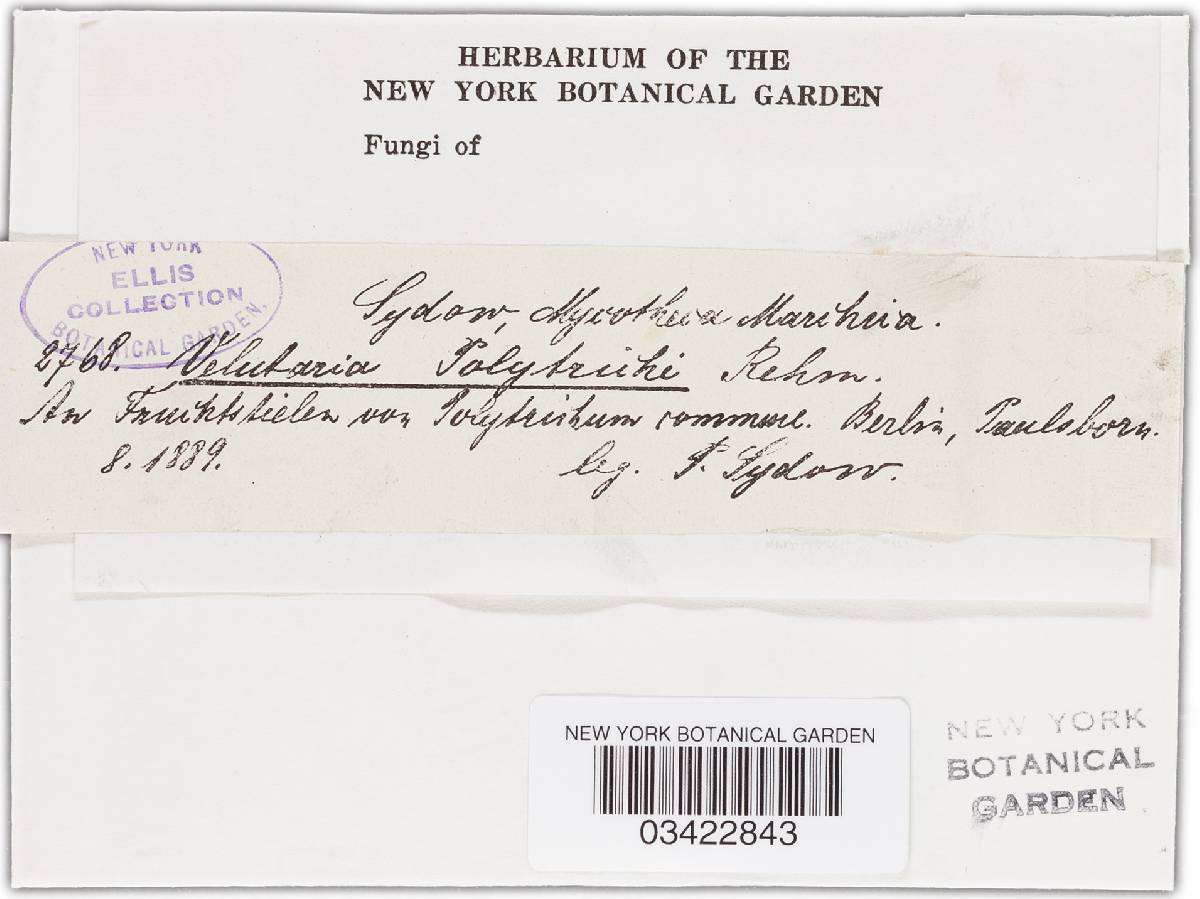 HERBARIUM OF THE
NEW YORK BOTANICAL GARDEN
Fungi of
NEW YORK
ELLIS
COLLECTION
BOTANICAL GARDEN.
Sydow, Mycotheca Marchica.
2768. Velutaria Polytrichi Rehm.
An Fruchtstielen von Polytrichum commune. Berlin, Paulsborn.
8. 1889. leg. P. Sydow.
NEW YORK BOTANICAL GARDEN
03422843
NEW YORK
BOTANICAL
GARDEN